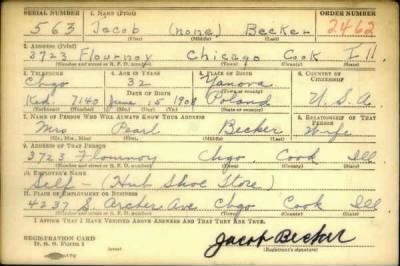 SERIAL NUMBER 1. NAME (Print) ORDER NUMBER
563 Jacob (none) Becker 2462
(First) (Middle) (Last)
2. ADDRESS (Print)
3723 Flournoy Chicago Cook Ill.
(Number and street or R. F. D. number) (Town) (County) (State)
3. TELEPHONE 4. AGE IN YEARS 5. PLACE OF BIRTH 6. COUNTRY OF CITIZENSHIP
Chgo 32 Yanova
DATE OF BIRTH
Ked. 7140 June 15 1908 Poland U.S.A.
7. NAME OF PERSON WHO WILL ALWAYS KNOW YOUR ADDRESS 8. RELATIONSHIP OF THAT PERSON
Mrs Pearl Becker Wife
(Mr., Mrs., Miss) (First) (Middle) (Last)
9. ADDRESS OF THAT PERSON
3723 Flournoy Chgo. Cook Ill
(Number and street or R. F. D. number) (Town) (County) (State)
10. EMPLOYER'S NAME
Self (Hub Shoe Store)
11. PLACE OF EMPLOYMENT OR BUSINESS
4237 S. Archer Ave Chgo Cook Ill.
(Number and street or R. F. D. number) (Town) (County) (State)
I AFFIRM THAT I HAVE VERIFIED ABOVE ANSWERS AND THAT THEY ARE TRUE.
REGISTRATION CARD
D. S. S. Form 1
Jacob Becker
(Registrant's signature)